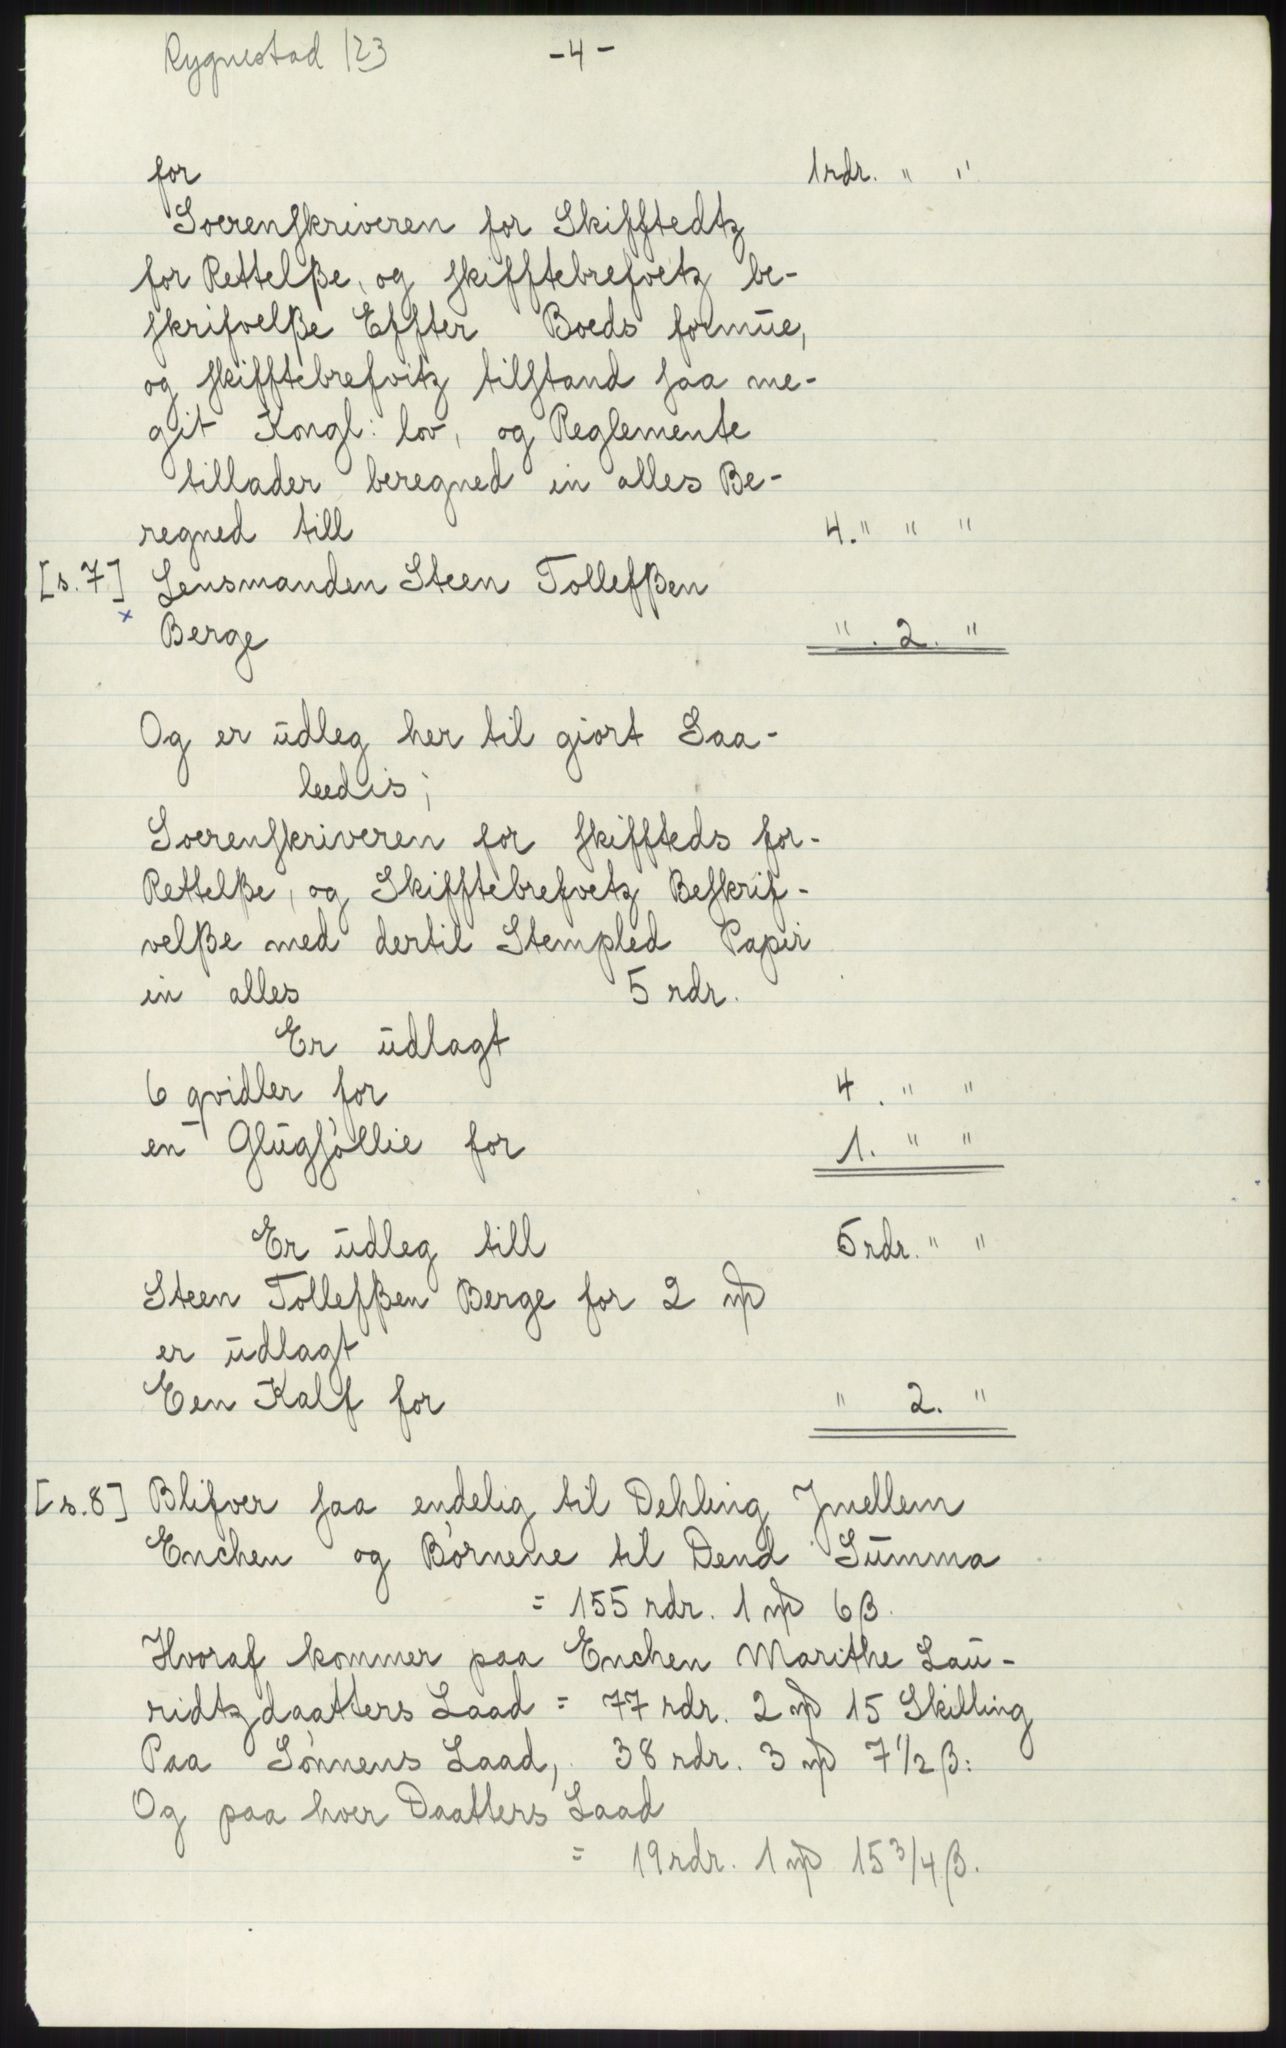 Rygnestad 123 -4-
for 1 rdr. " "
Soerenskriveren for Skifftedtz
for Rettelße, og skifftebrefvetz be-
skrifvelße Effter Boeds formüe,
og skifftebrefvitz tilstand saa me-
git Kongl: lov, og Reglemente
tillader beregned in alles Be-
regned till 4. " " "
[s. 7] Lensmanden Steen Tollefßen
x Berge " . 2. "
Og er üdleg her til giort Saa-
leedis;
Soerenskriveren for skiffteds for-
Rettelße, og Skifftebrefvetz Beskrif-
velße med dertil Stempled Papir
in alles 5 rdr.
Er üdlagt
6 qvidler for 4. " "
en Glügsóllie for 1. " "
Er üdleg till 5 rdr. " "
Steen Tollefßen Berge for 2 mþ
er üdlagt
Een Kalf for " 2. "
[s. 8] Blifver saa endelig til Dehling Jmellem
Enchen og Bórnene til Dend Sümma
= 155 rdr. 1 mþ 6 β.
Hvoraf kommer paa Enchen Marithe Laü-
ridtzdaatters Laad = 77 rdr. 2 mþ 15 Skilling
Paa Sónnens Laad, 38 rdr. 3 mþ 7 1/2 β:
Og paa hver Daatters Laad
= 19 rdr. 1 mþ 15 3/4 β.